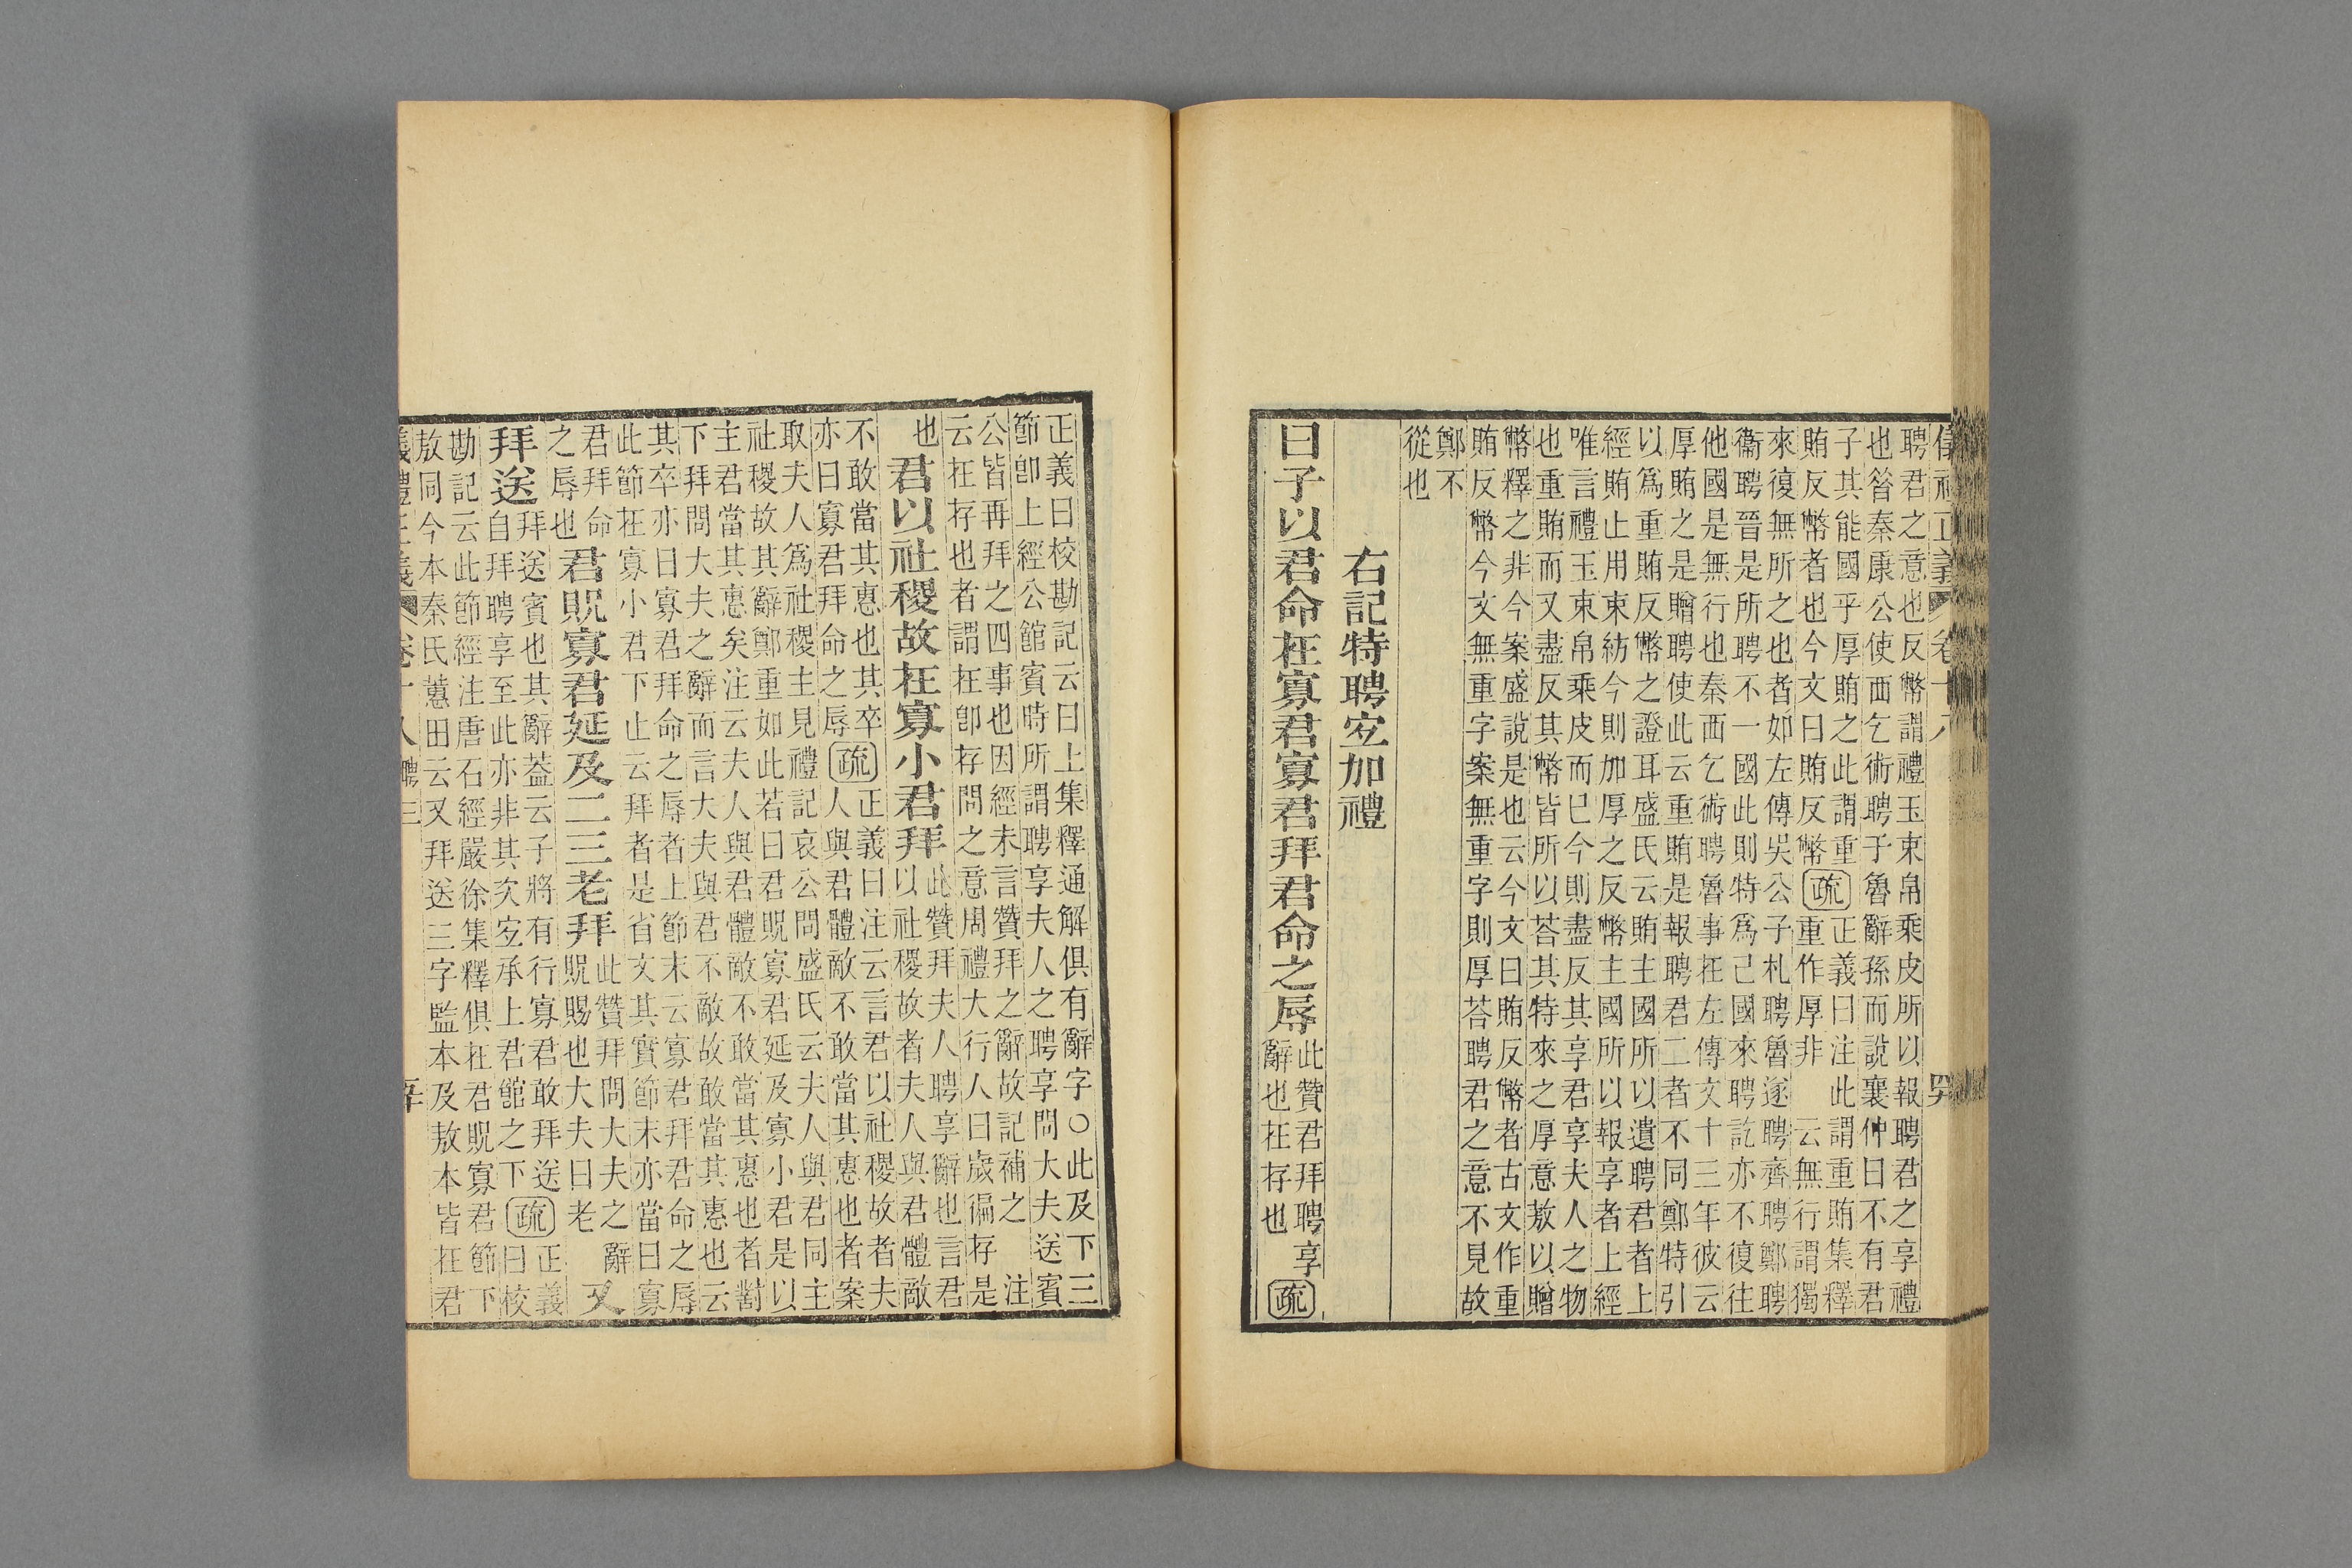 聘君之意也反幣謂禮玉束帛乘皮所以報聘君之享禮
也昝秦康公使西乞術聘子魯辭孫而說襄仲曰不有君
子其能國乎厚賄之此謂重
賄反幣者也今文曰賄反幣
疏
正義曰注此謂重賄集釋
重作厚非 云無行謂獨
來復無所之也者如左傳吳公子札聘魯遂聘齊聘鄭聘
衞聘晉是所聘不一國此則特爲己國來聘訖亦不復往
他國是無行也秦西乞術聘魯事在左傳文十三年彼云
厚賄之是贈聘使此云重賄是報聘君二者不同鄭特引
以爲重賄反幣之證耳盛氏云賄主國所以遺聘君者上
經賄止用束紡今則加厚之反幣主國所以報享者上經
唯言禮玉束帛乘皮而已今則盡反其享君享夫人之物
也重賄而又盡反其幣皆所以荅其特來之厚意敖以贈
幣釋之非今案盛說是也云今文曰賄反幣者古文作重
賄反幣今文無重字案無重字則厚荅聘君之意不見故
鄭不
從也
右記特聘宐加禮
曰子以君命在寡君寡君拜君命之辱
此贊君拜聘享
辭也在存也
疏
正義曰校勘記云曰上集釋通解俱有辭字○此及下三
節卽上經公館賓時所謂聘享夫人之聘享問大夫送賓
公皆再拜之四事也因經未言贊拜之辭故記補之 注
云在存也者謂在卽存問之意周禮大行人曰歲徧存是
也
君以社稷故在寡小君拜
此贊拜夫人聘享辭也言君
以社稷故者夫人與君體敵
不敢當其惠也其卒
亦曰寡君拜命之辱
疏
正義曰注云言君以社稷故者夫
人與君體敵不敢當其惠也者案
取夫人爲社稷主見禮記哀公問盛氏云夫人與君同主
社稷故其辭鄭重如此若曰君貺寡君延及寡小君是以
主君當其惠矣注云夫人與君體敵不敢當其惠也者對
下拜問大夫之辭而言大夫與君不敵故敢當其惠也云
其卒亦曰寡君拜命之辱者上節末云寡君拜君命之辱
此節在寡小君下止云拜者是省文其實節末亦當曰寡
君拜命
之辱也
君貺寡君延及二三老拜
此贊拜問大夫之辭
貺賜也大夫曰老
又
拜送
拜送賓也其辭葢云子將有行寡君敢拜送
自拜聘享至此亦非其次宐承上君館之下
疏
正義
曰校
勘記云此節經注唐石經嚴徐集釋俱在君貺寡君節下
敖同今本秦氏蕙田云又拜送三字監本及敖本皆在君